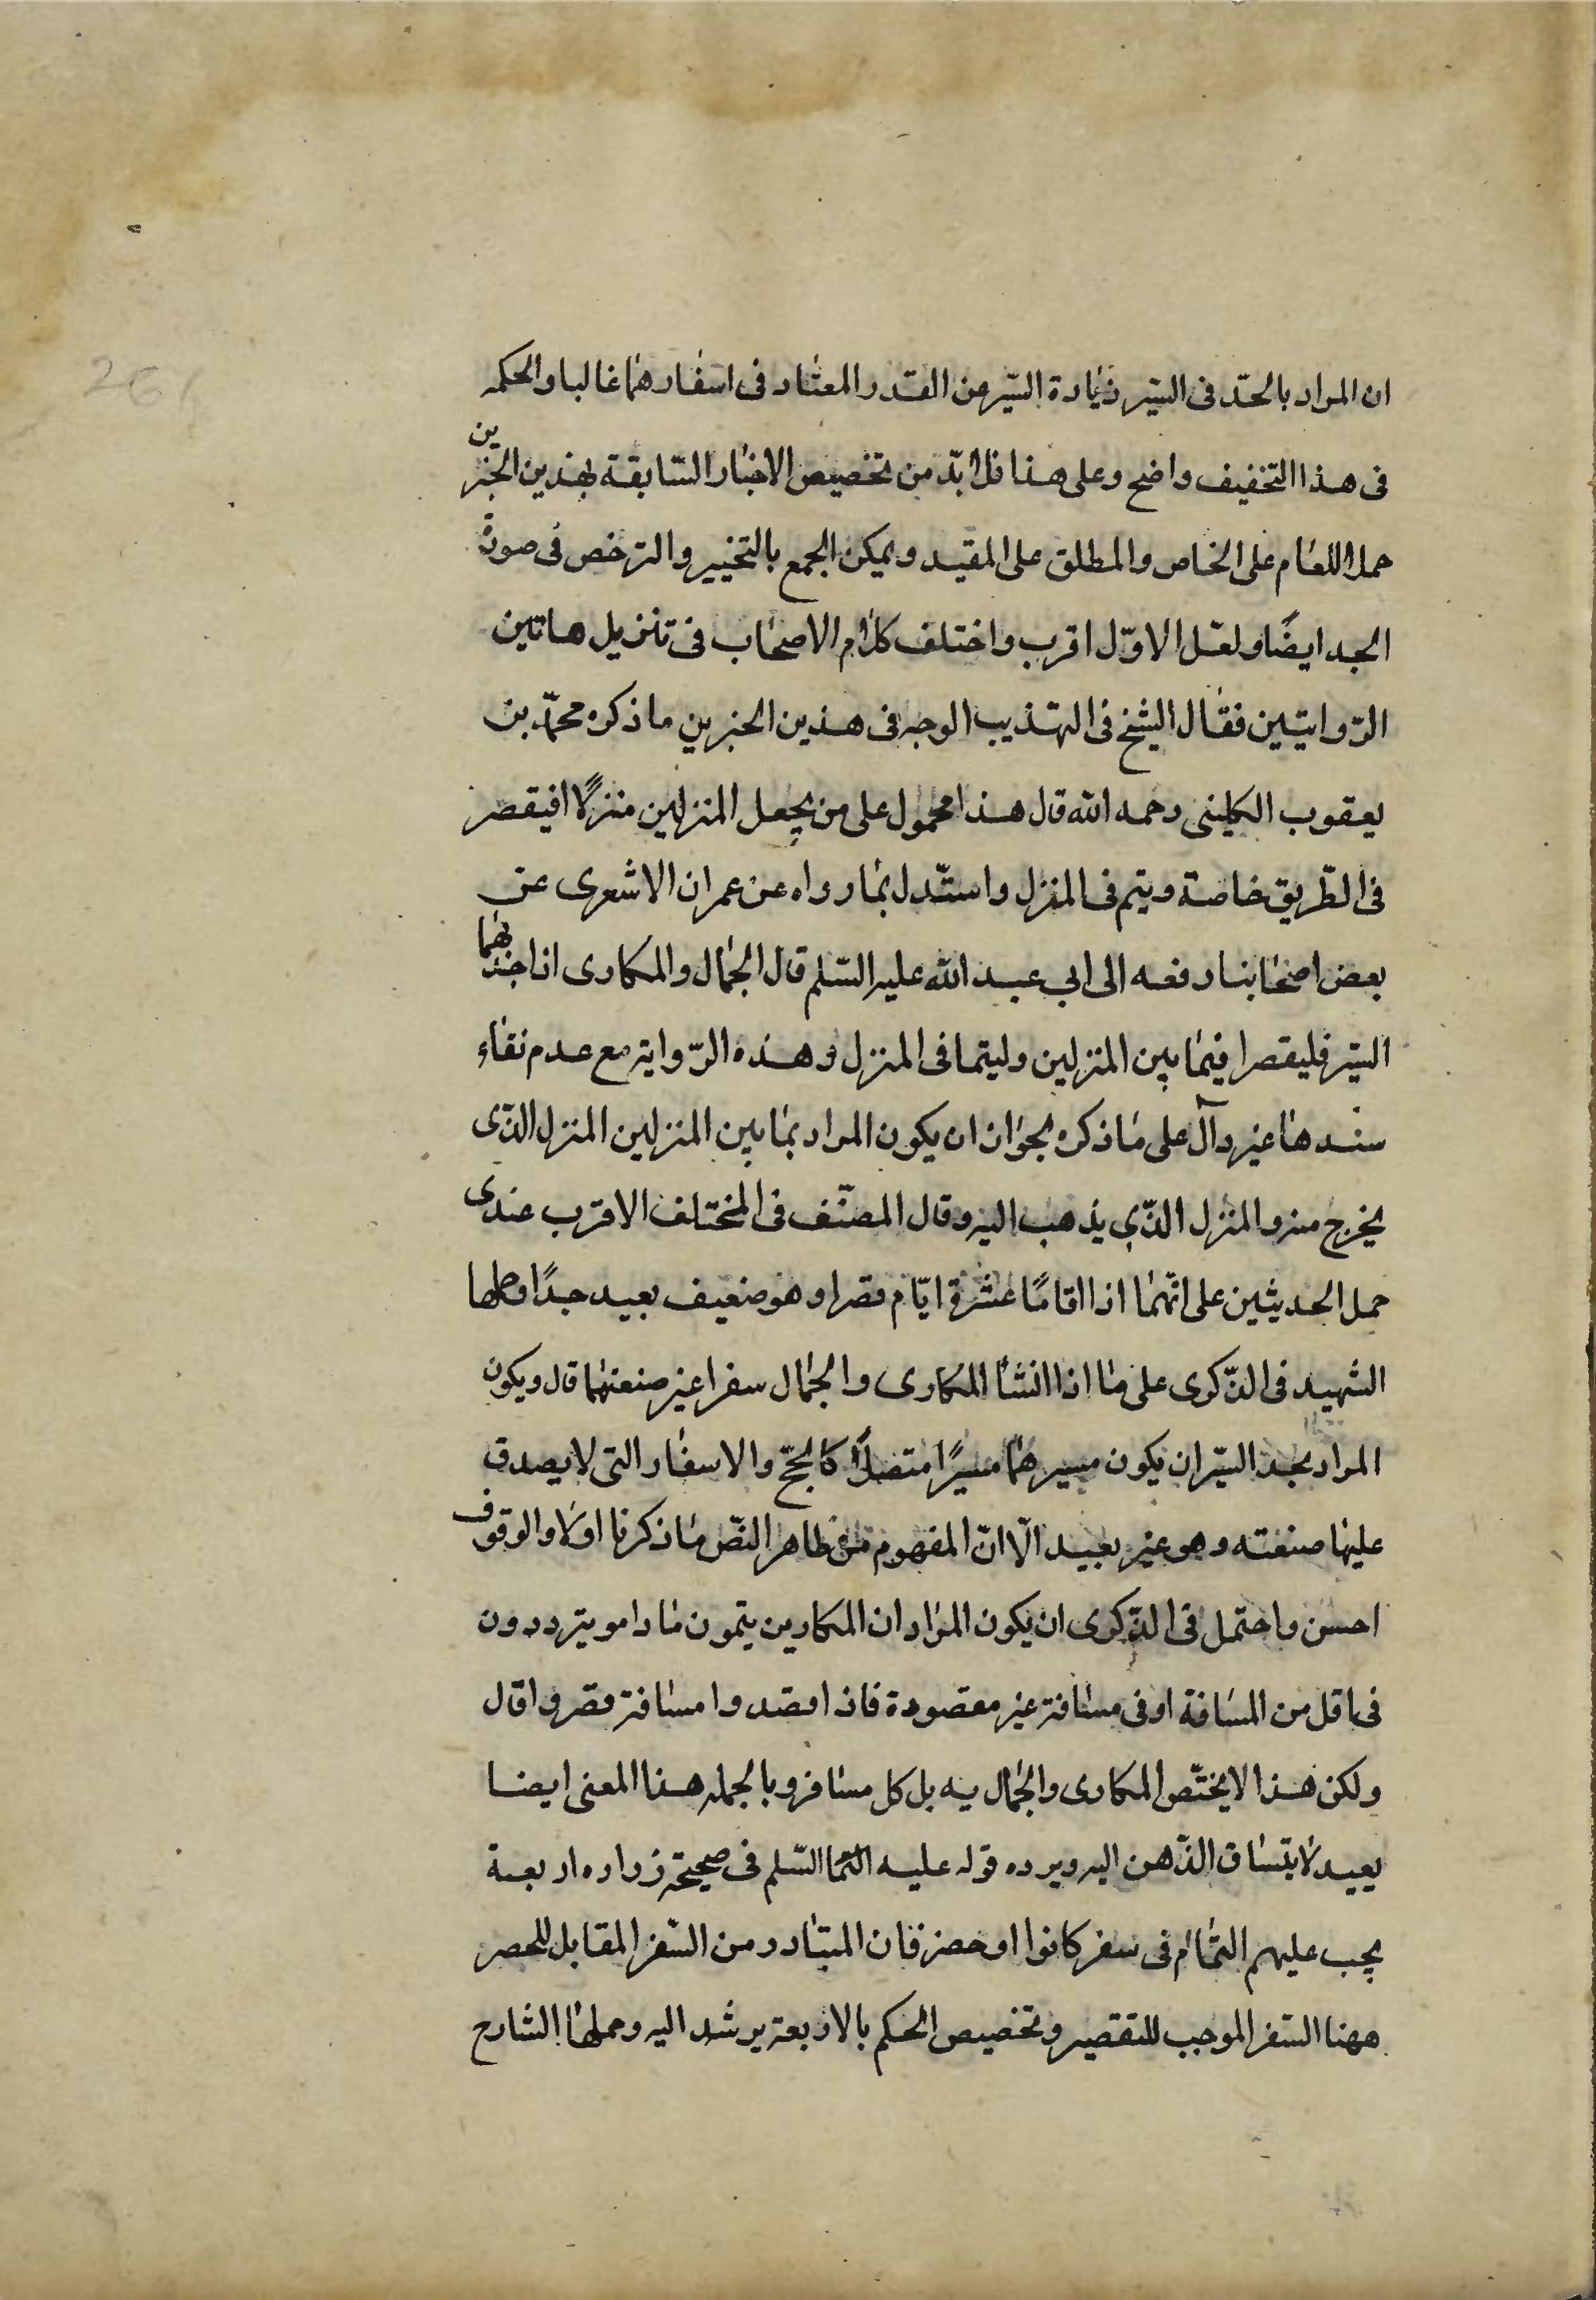 261
ان المراد بالجد فى السّير زيادة السّير عن القدر المعتاد فى اسفارهما غالبا والحكمه
فى هذا التخفيف واضح وعلى هذا فلا بدّ من تخصيص الاخبار السّابقة بهذين الخبرين
حملا للعام على الخاص والمطلق على المقيد ويمكن الجمع بالتخيير والترخص فى صورة
الجد ايضًا ولعّل الاوّل اقرب واختلف كلام الاصحاب فى تنزيل هاتين
الرّوايتين فقال الشيخ فى التهذيب الوجه فى هذين الخبرين ما ذكره محمّد بن
يعقوب الكلينى رحمه الله قال هذا محمول على من يجعل المنزلين منزلًا فيقصر
فى الطّريق خاصة ويتم فى المنزل واستّدل بما رواه عن عمران الاشعرى عن
بعض اصحابنا رفعه الى ابي عبد الله عليه السّلم قال الجمال والمكارى اذا جد بهما
السّير فليقصرا فيما بين المنزلين وليتما فى المنزل وهذه الرّواية مع عدم نقاء
سندها غير دآل على ما ذكره لجواز ان يكون المراد بما بين المنزلين المنزل الذّى
يخرج منه والمنزل الذّي يذهب اليه وقال المصنّف فى المختلف الاقرب عندى
حمل الحديثين على انّهما اذا اقامًا عشرة ايّام قصرا وهو ضعيف بعيد جدًا وحملها
الشهيد فى الذّكرى على ما اذا انشأ المكارى والجمال سفرا غير صنعتهما قال ويكون
المراد بجد السّير ان يكون مسيرهما مسيرًا متصلًا كالحجّ والاسفار التى لا يصدق
عليها صنعته وهو غير بعيد الّا انّ المفهوم من ظاهر النصّ ما ذكرنا اولا والوقوف
احسن واحتمل فى الذّكرى ان يكون المراد ان المكارين يتمون ما دامو يترددون
فى اقل من المسافة او فى مسافة غير مقصودة فاذا قصدوا مسافة قصروا قال
ولكن هذا لا يختّص المكارى والجمال به بل كل مسافر وبالجمله هذا المعنى ايضا
بعيد لا يتساق الذّهن اليه ويرده قوله عليه السّلم فى صحيحة زراره اربعة
يجب عليهم التمام فى سفر كانوا او حضر فان المتبادر من السّفر المقابل للحصر
ههنا السّفر الموجب للتقصير وتخصيص الحكم بالاربعة يرشد اليه وحملها الشارح